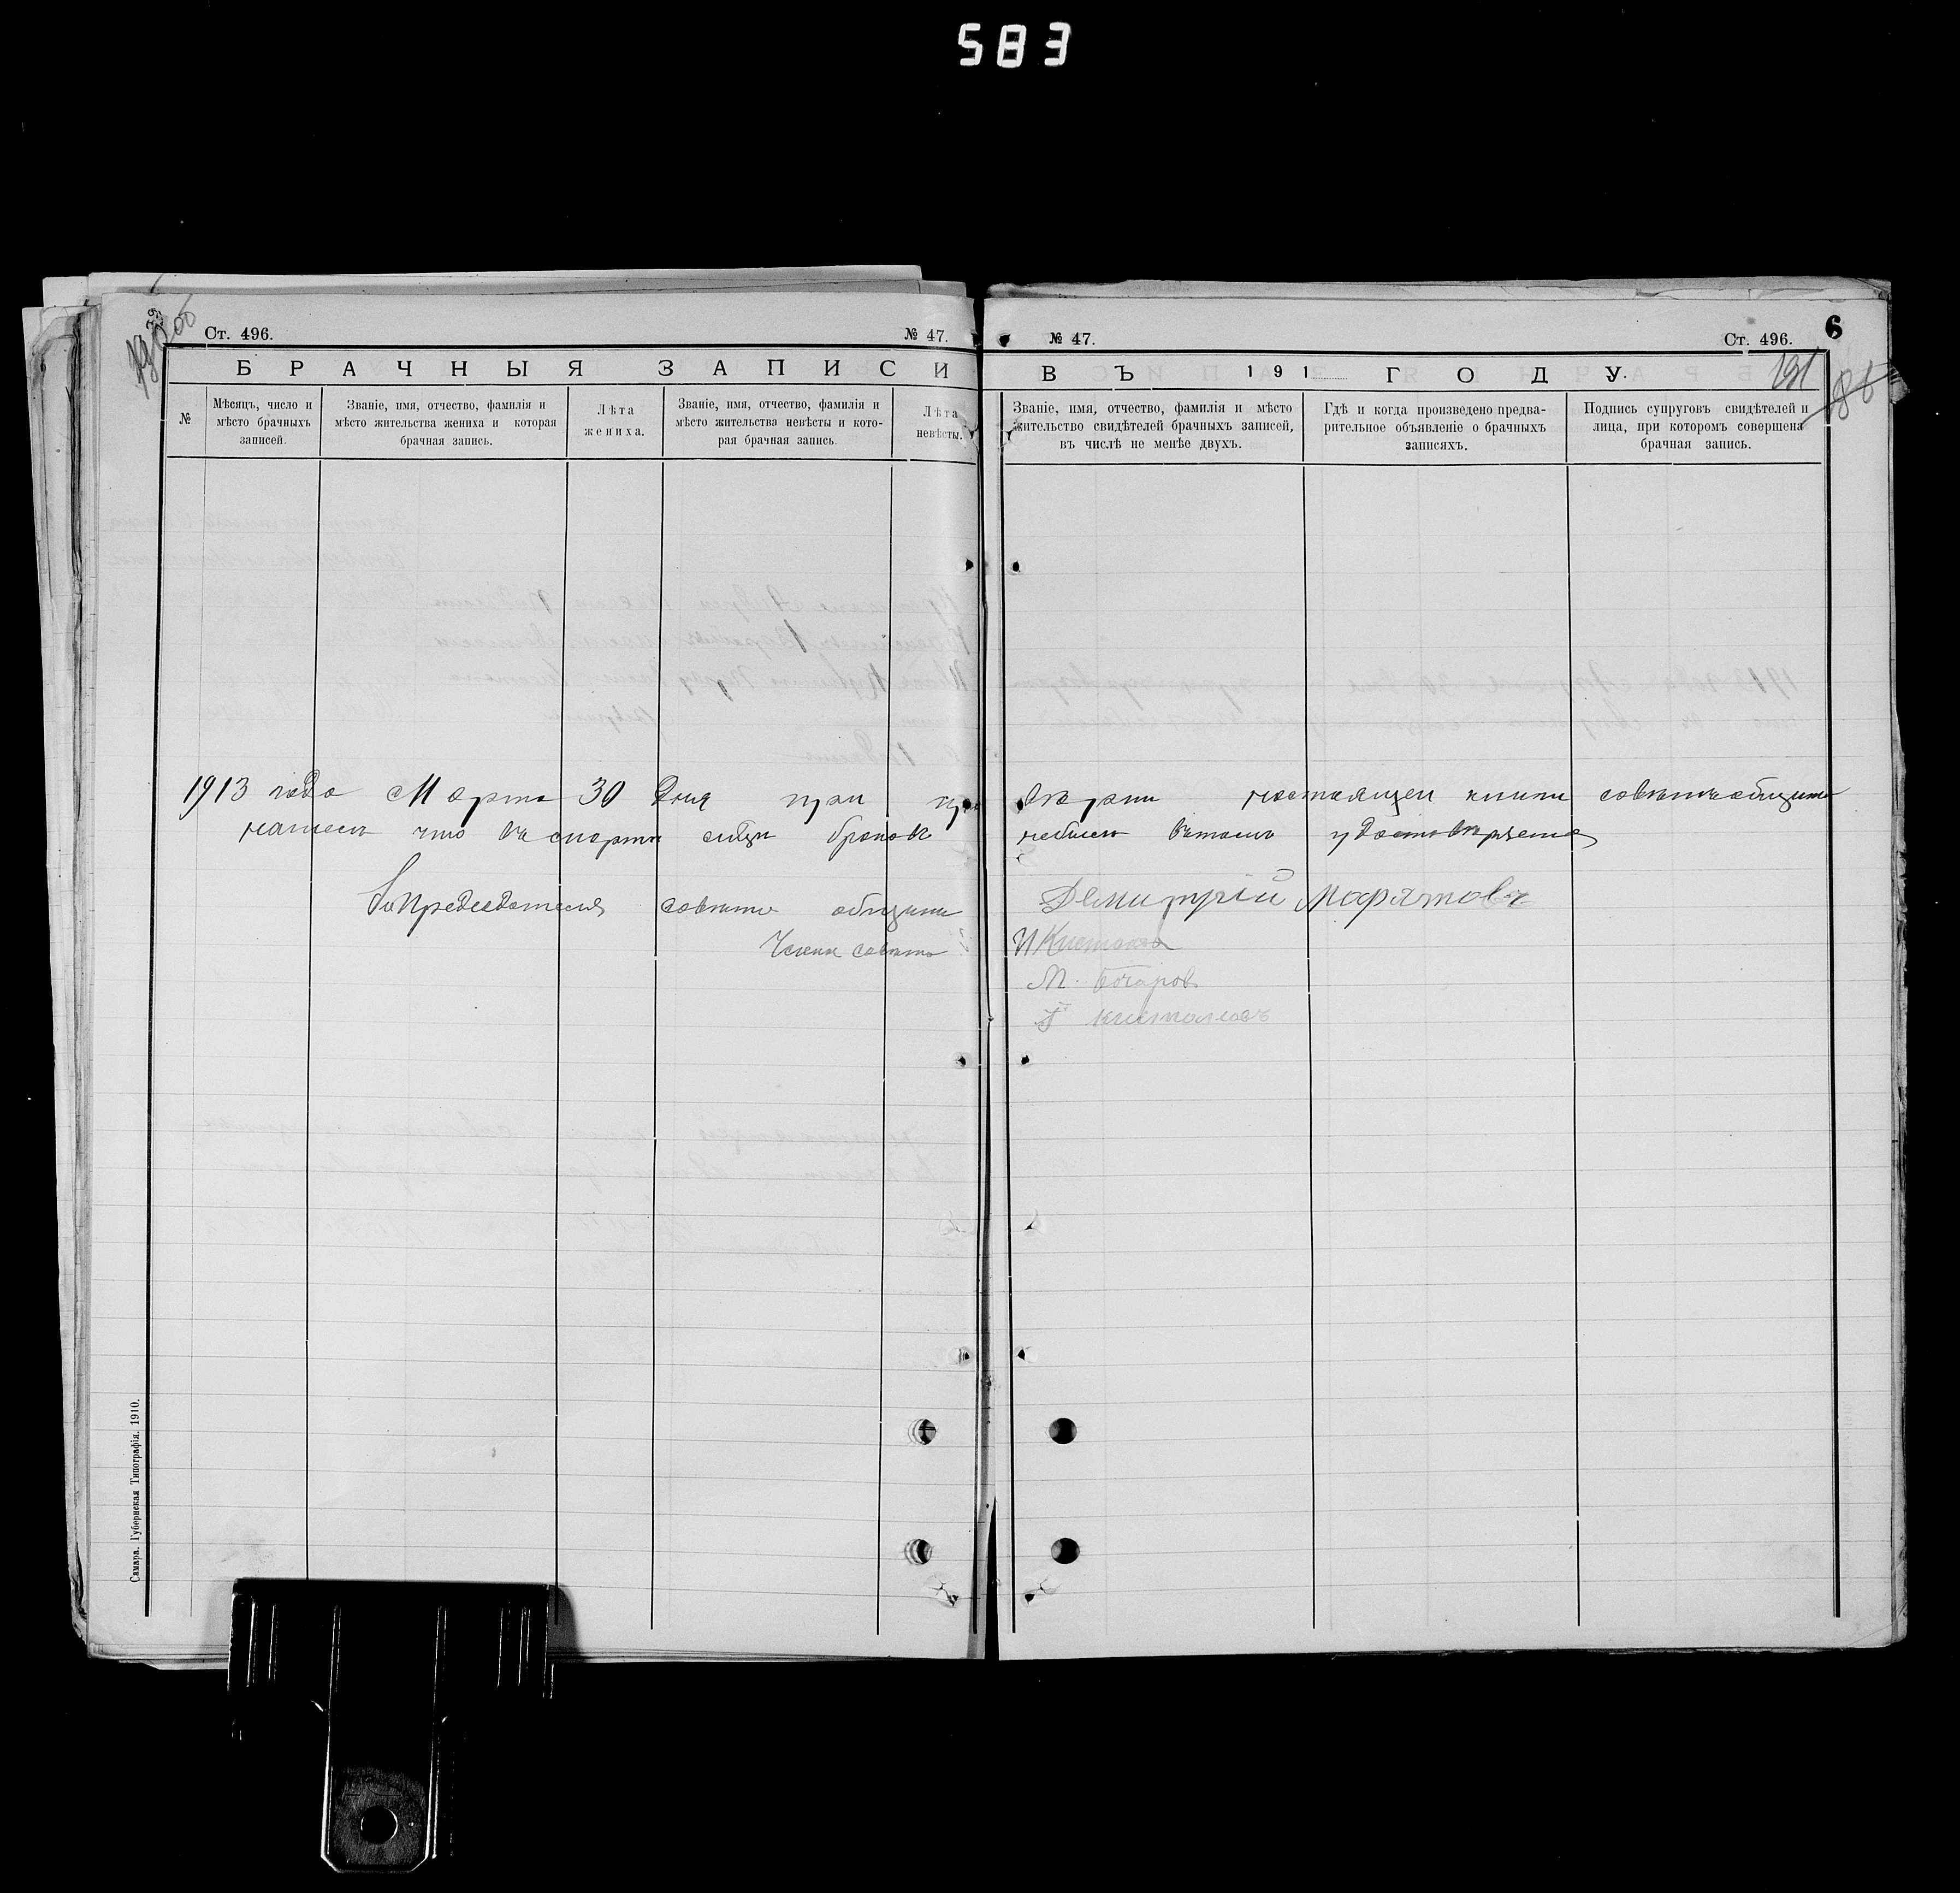 583
Ст. 496.
№ 47.
БРАЧНЫЯ ЗАПИСИ
№
Мѣсяцъ, число и
мѣсто брачныхъ
записей.
Званіе, имя, отчество, фамилія и
мѣсто жительства жениха и которая
брачная запись.
Лѣта
жениха.
Званіе, имя, отчество, фамилія и
мѣсто жительства невѣсты и кото-
рая брачная запись.
Лѣта
невѣсты.
№ 47.
Ст. 496.
6
ВЪ 191 ГОДУ.
191
Званіе, имя, отчество, фамилія и мѣсто
жительство свидѣтелей брачныхъ записей,
въ числѣ не менѣе двухъ.
Гдѣ и когда произведено предва-
рительное объявленіе о брачныхъ
записяхъ.
Подпись супруговъ свидѣтелей и
лица, при которомъ совершена
брачная запись.
1913 года Марта 30 дня при провѣрки настоящеи книги совѣтъ общины
что въ браковъ небыло въ томъ удостовѣряемъ
Председателя совѣта общины Демитрій
Члены совѣта
М. Бочаров
Самара. Губернская Типографія. 1910.